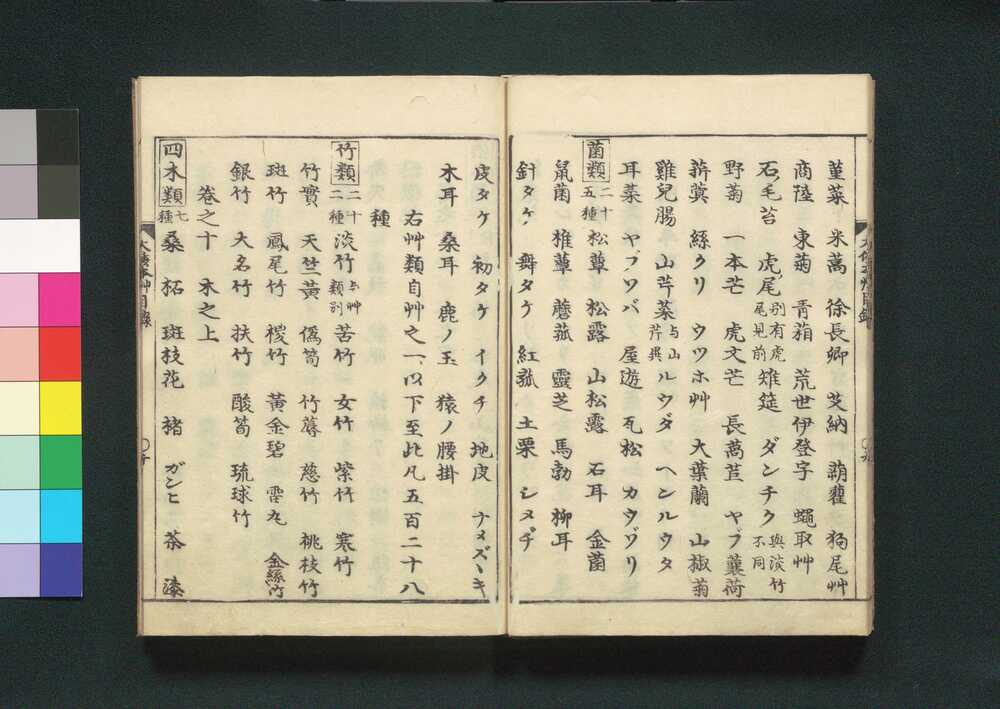 菫菜 米蒿 徐長卿 艾納 蘿藦 狗尾艸
商陸 東菊 青葙 荒世伊登宇 蠅取艸
石毛苔 虎ノ尾 別有虎尾見前 雉筵 ダンチク 與淡竹不同
野菊 一本芒 虎文芒 長萵苣 ヤブ蘘荷
菥蓂 絲クリ ウツホ艸 大葉蘭 山椒菊
雞兒腸 山芹菜 与山芹異 ルウダ ヘンルウタ
耳菜 ヤブソバ 屋遊 瓦松 カウゾリ
菌類 二十五種 松蕈 松露 山松露 石耳 金菌
鼠菌 椎蕈 蘑菰 靈芝 馬勃 柳耳
針タケ 舞タケ 紅菰 土栗 シメヂ
皮タケ 初タケ イクチ 地皮 ナメズヽキ
木耳 桑耳 鹿ノ玉 猿ノ腰掛
右艸類自艸之一以下至此凡五百二十八
種
竹類 二十二種 淡竹 与艸類別 苦竹 女竹 紫竹 寒竹
竹實 天竺黃 僞筍 竹蓐 慈竹 桃枝竹
斑竹 鳳尾竹 椶竹 黃金碧 雷丸 金絲竹
銀竹 大名竹 扶竹 酸筍 琉球竹
卷之十 木之上
四木類 七種 桑 柘 斑枝花 楮 ガンヒ 茶 漆
大倭本艸目錄